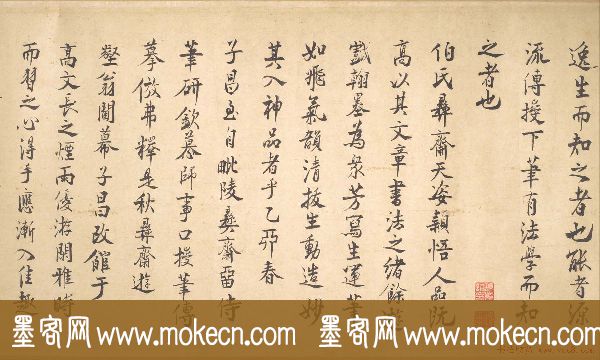 逸生而知之者也能者源
流傳授下筆有法學而知
之者也
伯氏彞齋天姿穎悟人品既
高以其文章書法之緒餘遊
戲翰墨為衆芳寫生運筆
如飛氣韻清拔生動造妙
其入神品者乎乙卯春
子昌至自毗陵彞齋留侍
筆研欽慕師事口授筆傳
摹倣弗釋是秋彞齋遊
壑翁閫幕子昌改館于
高文長之煙雨優游閒雅時
而習之心得手應漸入佳趣
墨客网 www.mokecn.com 墨客网 www.mokecn.com